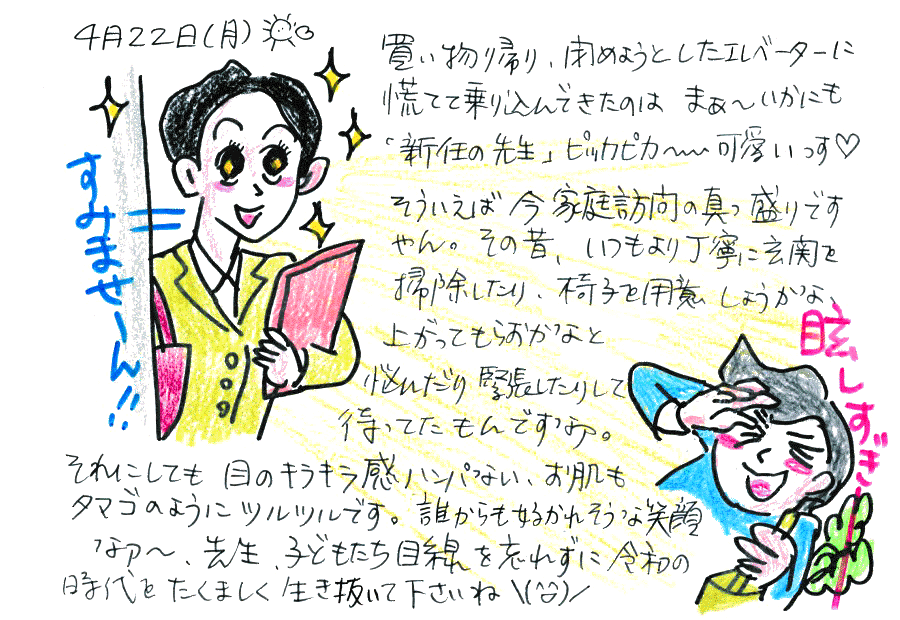 4月22日(月)
買い物帰り、閉めようとしたエレベーターに
慌てて乗り込んできたのは まぁ〜いかにも
「新任の先生」ピッカピカ〜〜可愛いっす♡
そういえば 今 家庭訪問の真っ盛りです
やん。その昔、いつもより丁寧に玄関を
掃除したり、椅子を用意しようかな、
上がってもらおかなと
悩んだり 緊張したりして
待ってたもんですわ。
それにしても 目のキラキラ感ハンパない、お肌も
タマゴのようにツルツルです。誰からも好かれそうな笑顔
なァ〜、先生、子どもたち目線を忘れずに 令和の
時代を たくましく 生き抜いて下さいね \(^^)/
すみませーん!!
眩しすぎ